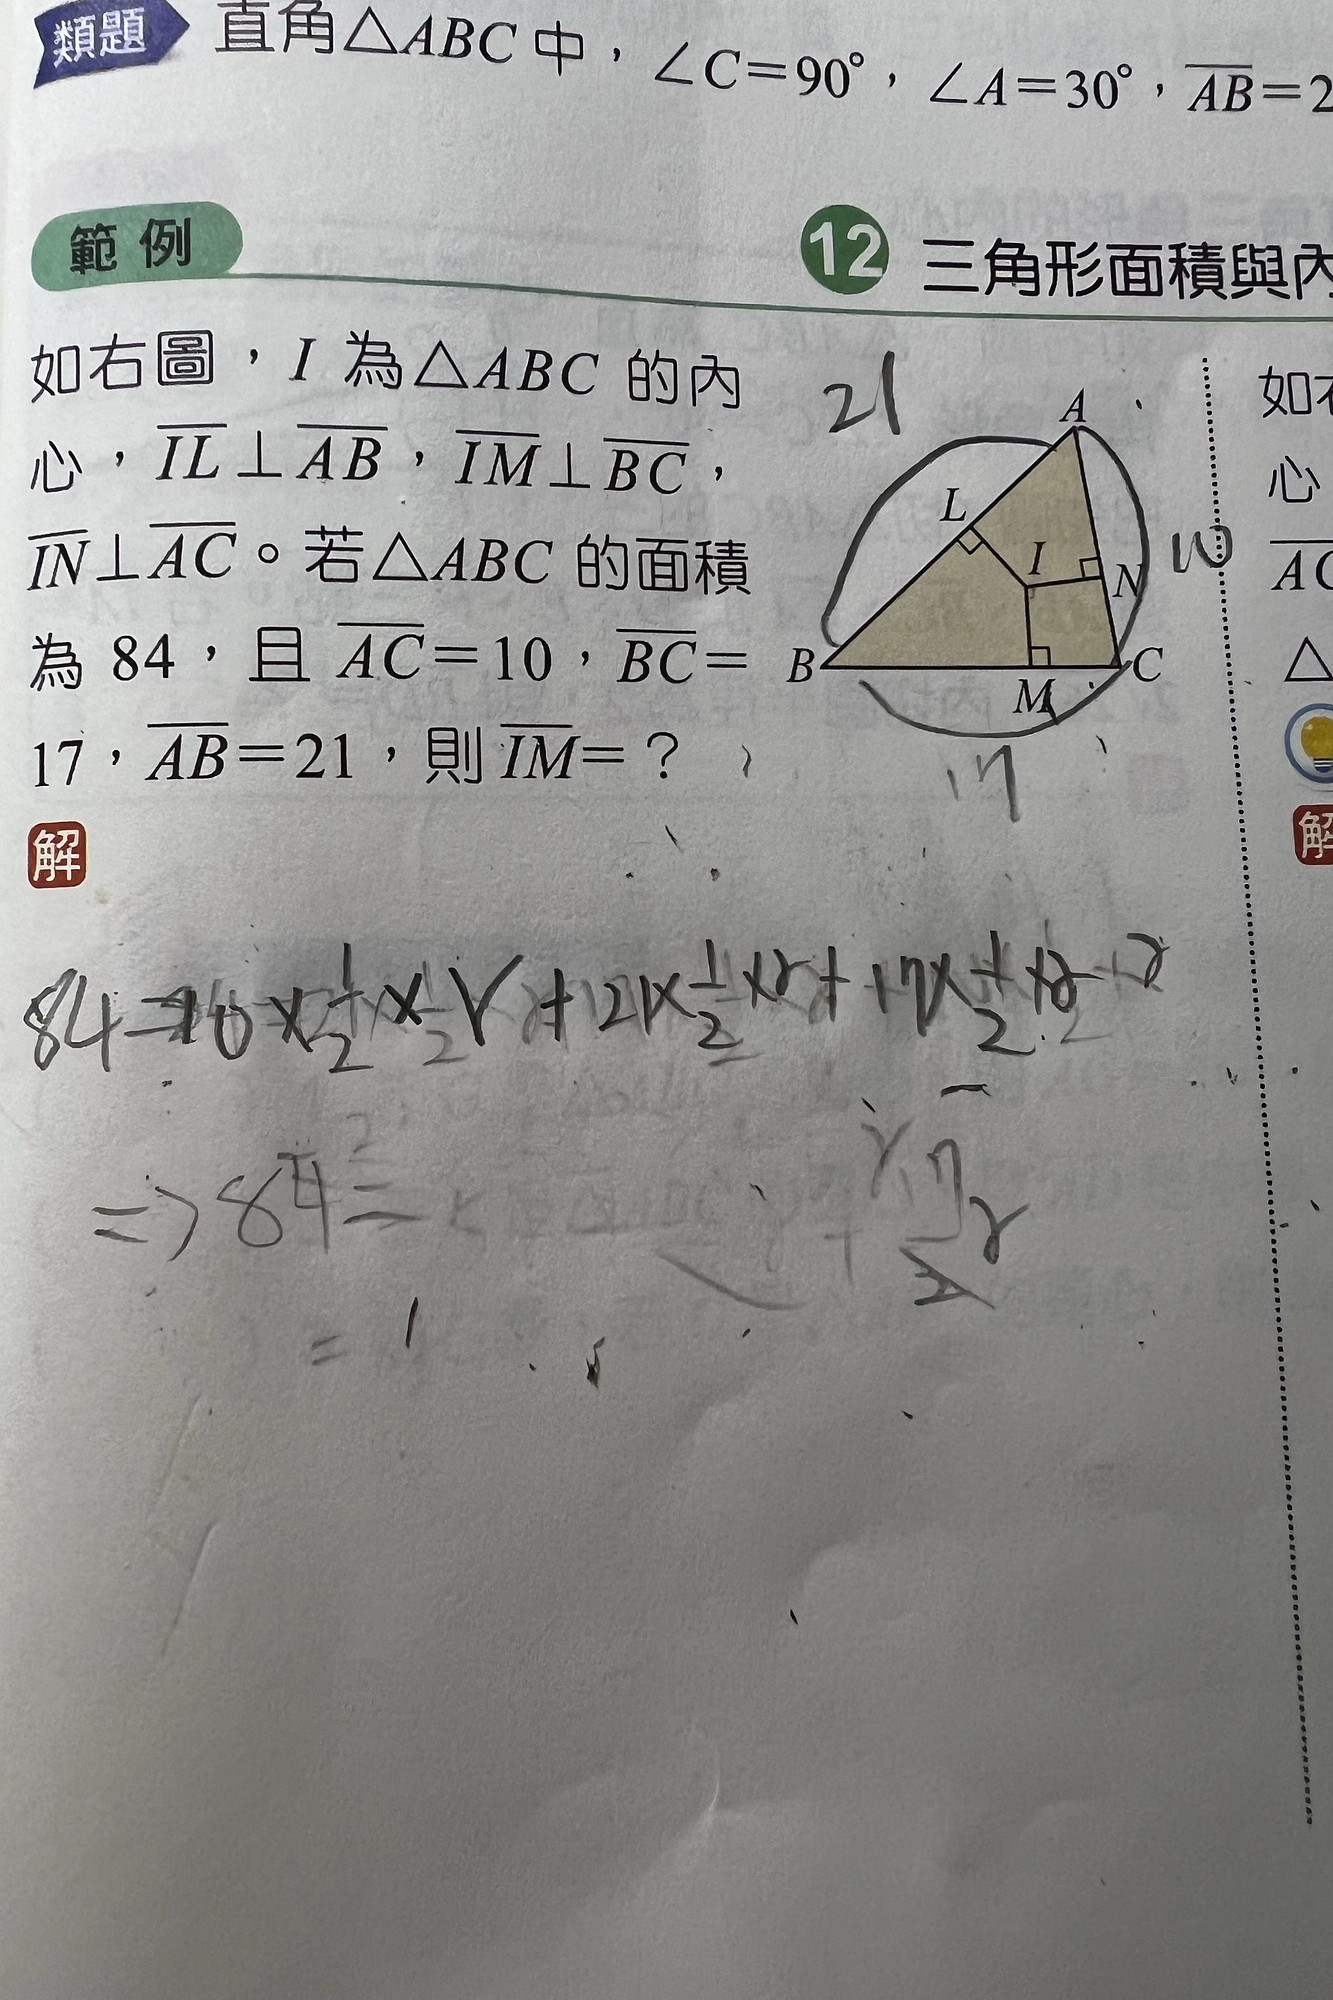 類題 直角△ABC中，∠C=90°，∠A=30°，AB=2
範例
12 三角形面積與內
如右圖，I 為△ABC 的內
心，IL⊥AB，IM⊥BC，
IN⊥AC。若△ABC 的面積
為 84，且 AC=10，BC=
17，AB=21，則 IM=？
21
A
L
I
N
10
B
M
C
17
解
84=10×1/2×r+21×1/2×r+17×1/2×r
=>84=
17/2 r
=
如
心
AC
△
解